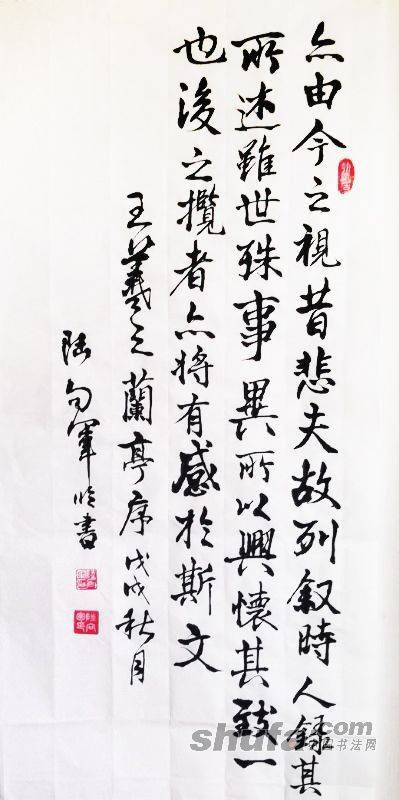 亦由今之視昔悲夫故列叙時人錄其
所述雖世殊事異所以興懷其致一
也後之攬者亦將有感於斯文
王羲之蘭亭序戊戌秋月
陆向軍臨書
shufa
国书法网